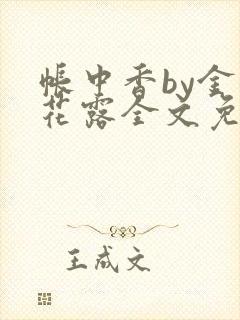 帐中香by金
花露全文免
王成文